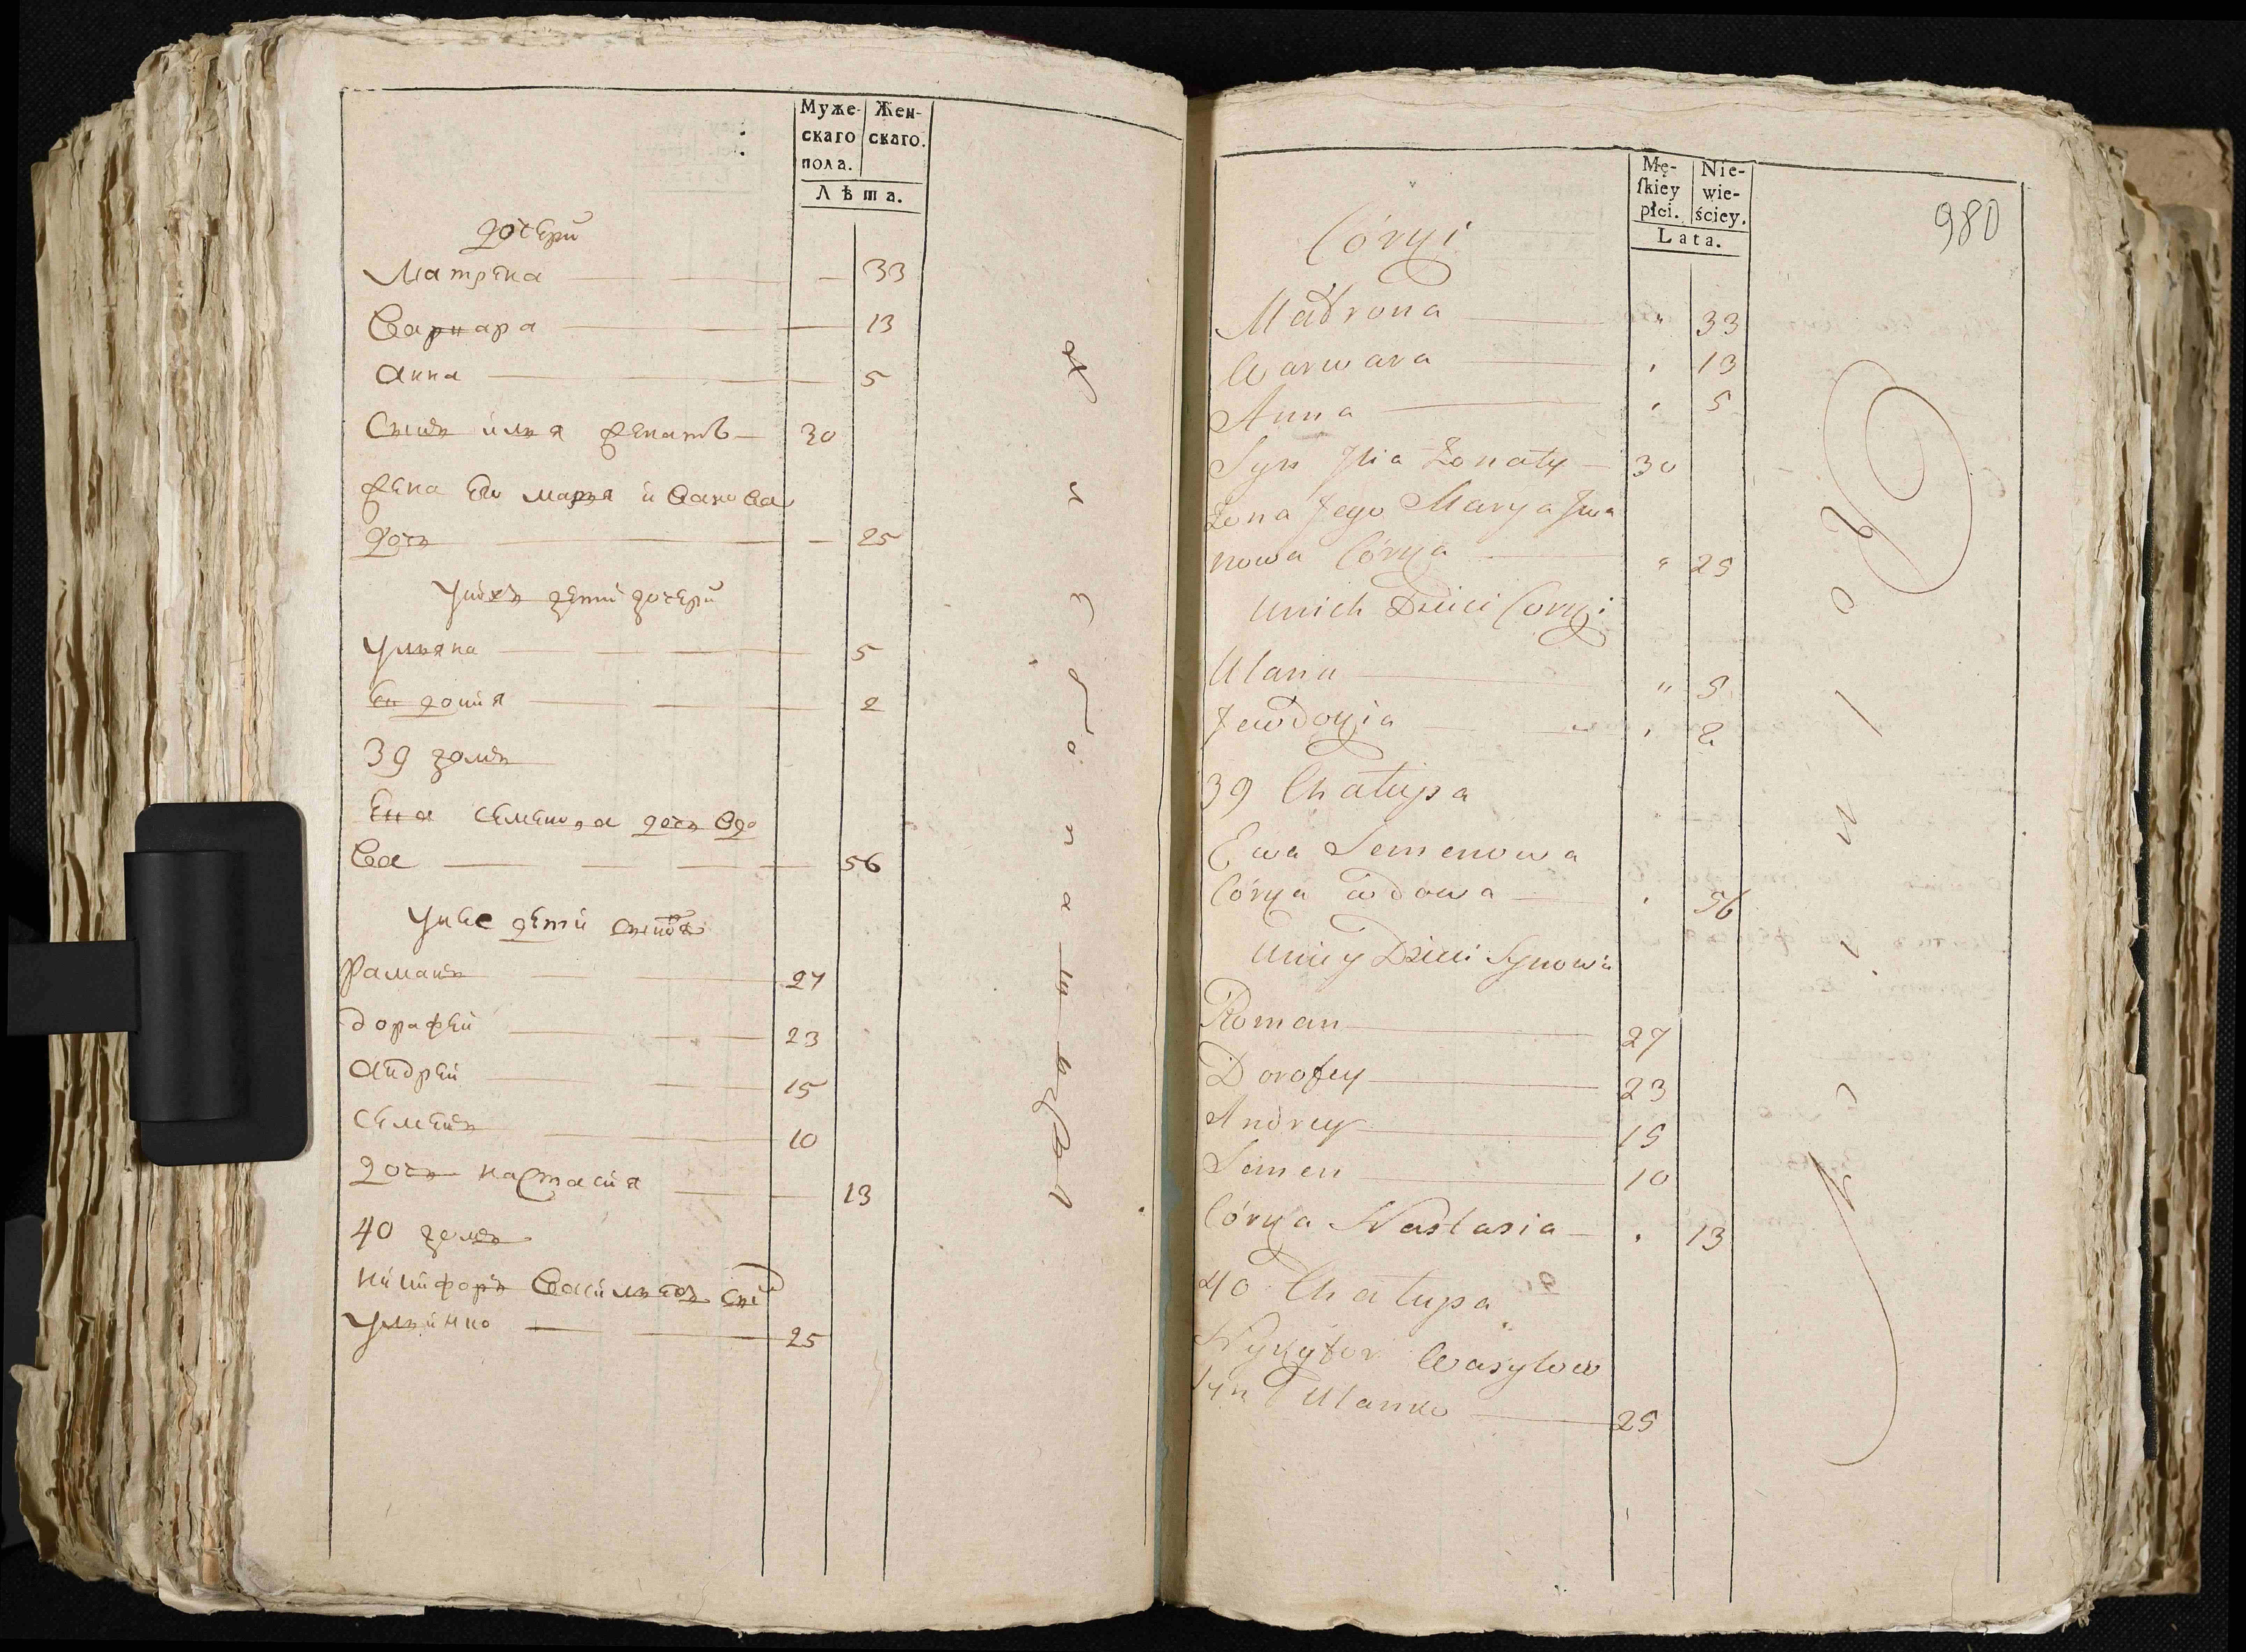 Муже- Жен-
скаго скаго.
пола.
Лѣта.
дочери
Матрена 33
Варвара 13
Анна 5
Сынъ илья женатъ 30
жена Его марья иванова
дочь 25
Уних дети дочери
Ульяна 5
Евдокия 2
39 домъ
Ева семенова дочь вдо
ва 56
Унее дети сыновя
Раманъ 27
Дорафей 23
Андрей 15
семенъ 10
дочь настасия 13
40 домъ
никифоръ василье снъ
Ульянко 25
Mę- Nie-
ſkiey wie-
płci. ściey.
Lata.
980
Córki
Madrona " 33
Warwara " 13
Anna " 5
Syn Ilia Żonaty 30
Żona Jego Marya Iwa
nowa Córka " 25
Unich Dzieci Corki
Ulana " 5
Jewdokia " 2
39 Chałupa
Ewa Semenowa
Córka wdowa " 56
Uniey Dzieci Synowie
Roman 27
Dorofey 23
Andrey 15
Semen 10
Córka Nastasia " 13
40 Chałupa
Nykyfor Wasylow
Syn Ulanko 25